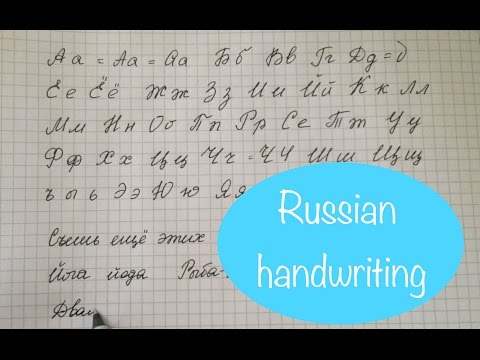 Аа = Аа = Аа Бб Вв Гг Дд = д
Ее Ёё Жж Зз Ии Йй Кк Лл
Мм Нн Оо Пп Рр Сс Тт Уу
Фф Хх Цц Чч = Чч Шш Щщ
ъ ы ь Ээ Юю Яя
Съешь ещё этих
Йога йода Рыба-
Два
Russian
handwriting